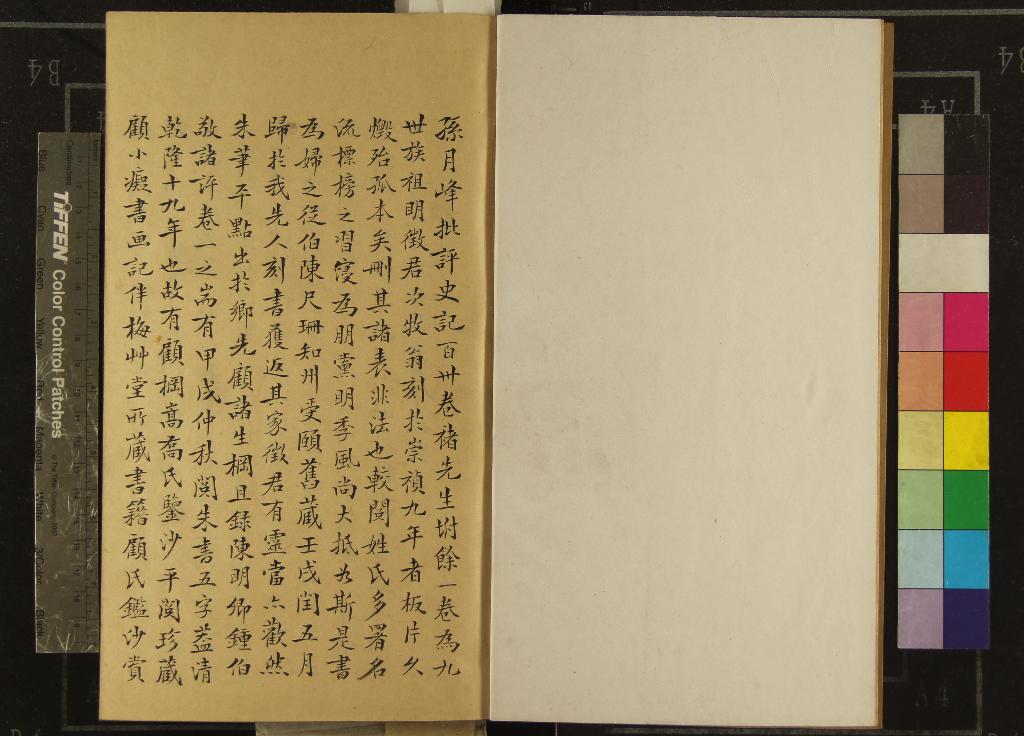 孫月峰批評史記百卅卷褚先生坿餘一卷為九
世族祖明徵君次牧翁刻於崇禎九年者板片久
燬殆孤本矣刪其諸表非法也較閱姓氏多署名
流標榜之習寖為朋黨明季風尚大抵如斯是書
為婦之從伯陳尺珊知州受頤舊蔵壬戌閏五月
歸於我先人刻書獲返其家徵君有靈當亦歡然
朱筆平點出於鄉先顧諸生棡且録陳明卿鍾伯
敬諸評卷一之耑有甲戌仲秋閲朱書五字葢清
乾隆十九年也故有顧棡嵩喬氏鑒沙平閱珍蔵
顧小癡書画記伴梅艸堂所蔵書籍顧氏鑑沙賞
TIFFEN Color Control Patches
Blue
Cyan
Green
Yellow
Red
Magenta
White
3/Color
Black
B4
A4
A4